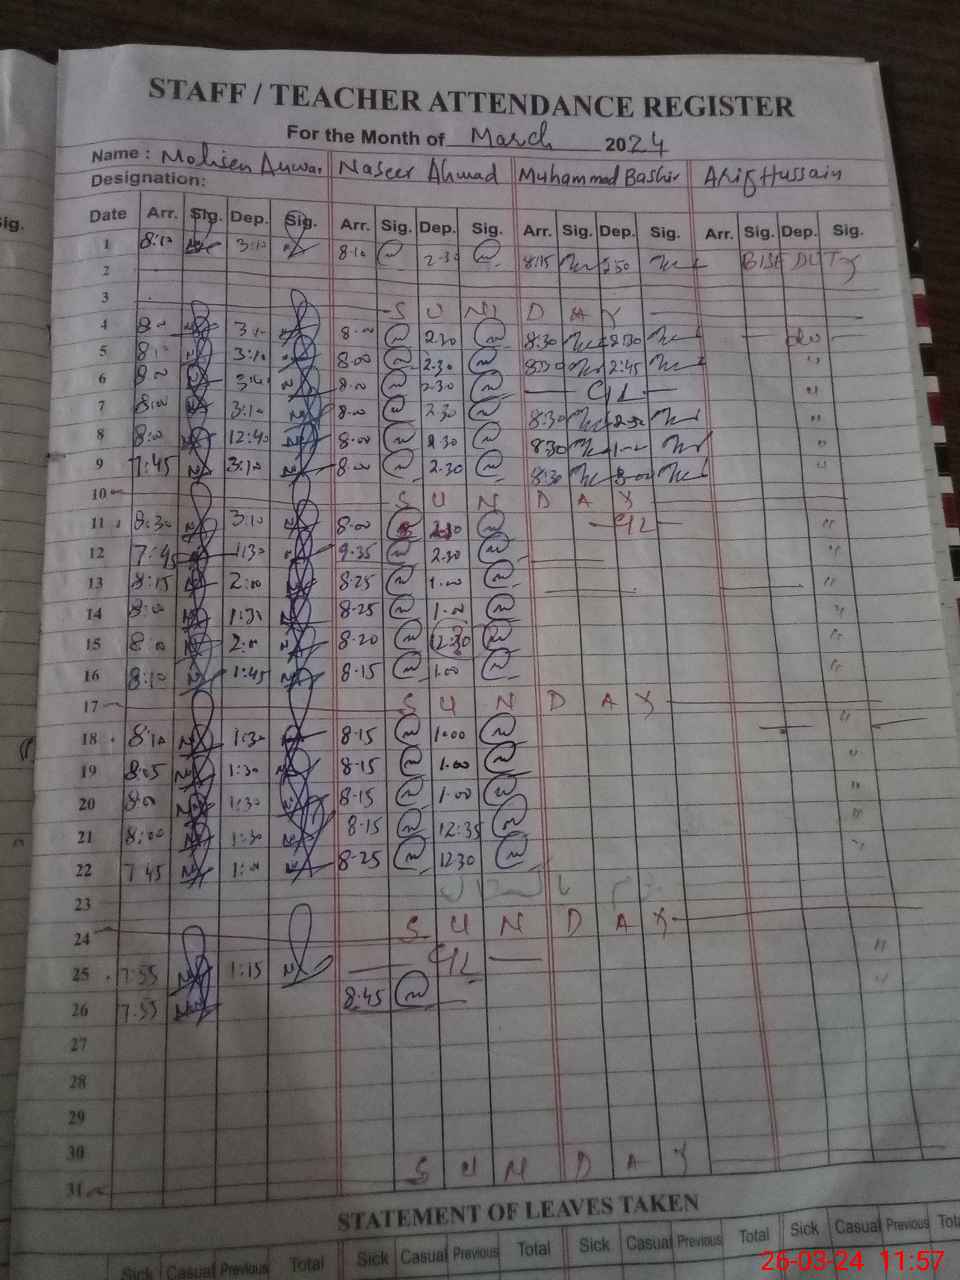 STAFF / TEACHER ATTENDANCE REGISTER
For the Month of March 2024
Name : Mohsen Anwar Naseer Ahmad Muhammad Bashir Arif Hussain
Designation:
Date Arr. Sig. Dep. Sig. Arr. Sig. Dep. Sig. Arr. Sig. Dep. Sig. Arr. Sig. Dep. Sig.
ig.
1 8:10 3:10 8.10 2.30 8:15 2:50 BISE DUTY
2
3 S U N D A Y
4 8:00 3:10 8.00 2.30 8:30 2:30 do
5 8:10 3:10 8.00 2.30 8:30 2:45 "
6 8:00 3:10 8.00 2.30 C/L "
7 8:00 3:10 8.00 2.30 8:30 "
8 8:00 12:40 8.00 2.30 8:30 "
9 7:45 3:10 8.00 2.30 8:30 "
10 S U N D A Y
11 8:30 3:10 8.00 2.30 C/L "
12 7:45 1:30 9.35 2.30 "
13 8:15 2:00 8.25 1.00 "
14 8:00 1:30 8.25 1.00 "
15 8:00 2:00 8.20 12:30 "
16 8:10 1:45 8.15 1.00 "
17 S U N D A Y
18 8:10 1:30 8.15 1.00 "
19 8:05 1:30 8.15 1.00 "
20 8:00 1:30 8.15 1.00 "
21 8:00 1:30 8.15 12:35 "
22 7:45 1:00 8.25 12.30 "
23
24 S U N D A Y
25 7:55 1:15 C/L "
26 7:55 8.45 "
27
28
29
30
31 S U N D A Y
STATEMENT OF LEAVES TAKEN
Sick Casual Previous Total Sick Casual Previous Total Sick Casual Previous Total Sick Casual Previous Tot
26-03-24 11:57